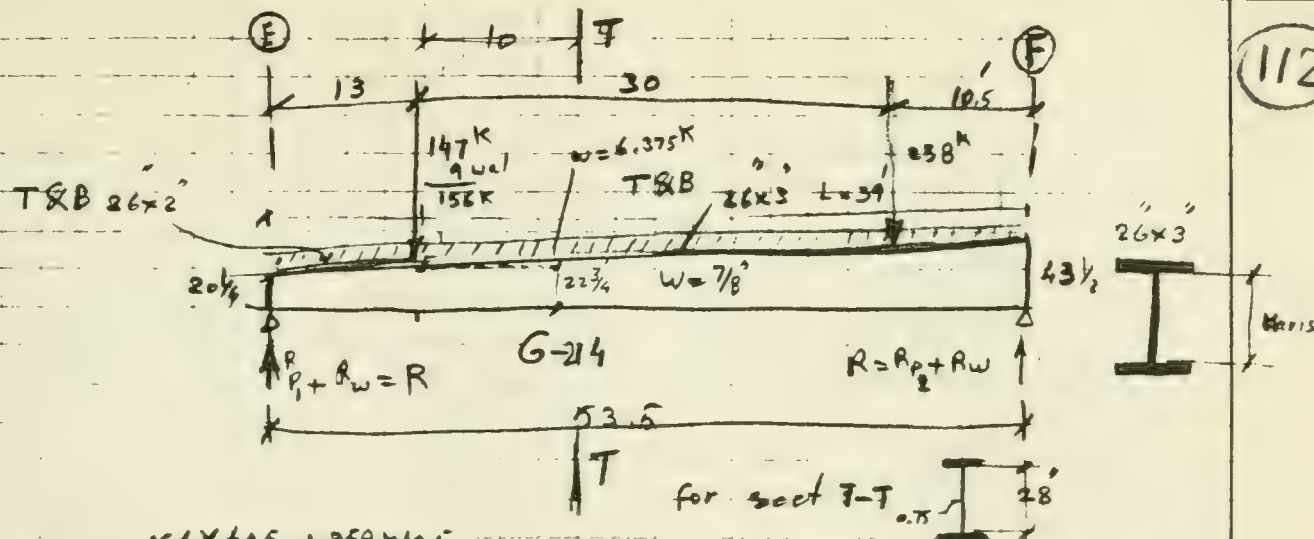 E
F
112
10
T
13
30
10.5'
147K
9 wal
156K
w=6.375K
258K
T&B 26"x2"
T&B
26"x3" L=39'
26"x3"
20 1/4
22 3/4
W=7/8"
43 1/2
G-214
R P1 + Rw = R
R=Rp2+Rw
53.5
T
for sect T-T
0.75
28"